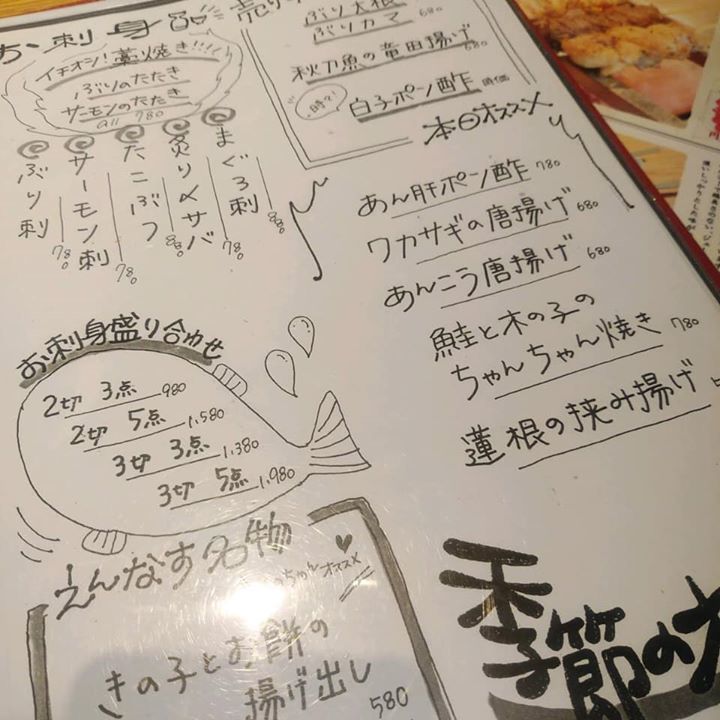 お刺身品
イチオシ!藁焼き!!!
ぶりのたたき
サーモンのたたき
all 780
まぐろ刺 880
炙り〆サバ 780
たこぶつ 880
サーモン刺 780
ぶり刺 780
ぶり大根
ぶりカマ 680
秋刀魚の竜田揚げ 680
白子ポン酢 時価
本日オススメ
あん肝ポン酢 780
ワカサギの唐揚げ 680
あんこう唐揚げ 680
鮭と木の子の
ちゃんちゃん焼き 780
蓮根の挟み揚げ
お刺身盛り合わせ
2切 3点 980
2切 5点 1,580
3切 3点 1,380
3切 5点 1,980
えんなす名物
ちゃんオススメ
きの子とお餅の
揚げ出し 580
季節の